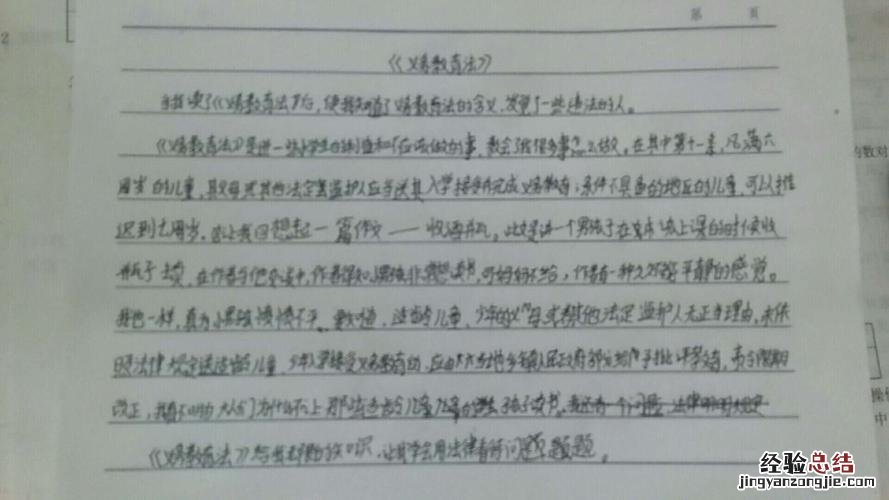 第 页
2
《义务教育法》
当我读了《义务教育法》后，使我知道了义务教育法的含义，发觉了一些违法的人。
《义务教育法》是讲一些小学生的制度和不应该做的事，教会了我很多事怎么做。在其中第十一条，凡满六
周岁的儿童，其父母或其他法定监护人应当送其入学接受并完成义务教育；条件不具备的地区的儿童，可以推
迟到七周岁。这让我回想起一篇作文——收酒瓶。此文是讲一个男孩子在本该上课的时候收
瓶子卖，在作者与他交谈中，作者得知小男孩非常想读书，可妈妈不给，作者有一种久久不能平静的感觉。
我也一样，真为小男孩愤愤不平。要知道，适龄儿童、少年的父母或其他法定监护人无正当理由，未依
照法律规定送适龄儿童、少年入学接受义务教育的，应由当地乡镇人民政府给予批评教育，责令限期
改正，我真不明白大人们为什么不上 孩子读书。我还有一个问题，法律明明规定
《义务教育法》 知识，让我学会用法律看待问题
内数对
操作
中
经验总结
jingyanzongjie.com